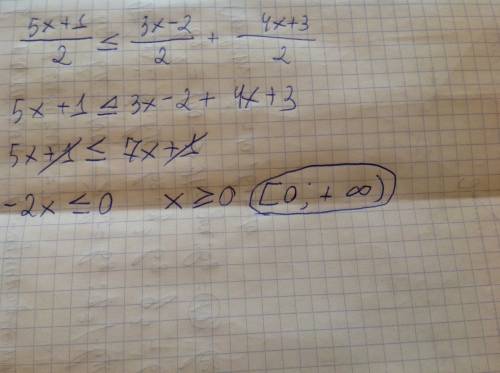 (5x+1)/2 ≤ (3x-2)/2 + (4x+3)/2
5x+1 ≤ 3x-2+ 4x+3
5x+1 ≤ 7x+1
-2x ≤ 0 x ≥ 0 [0; + ∞)